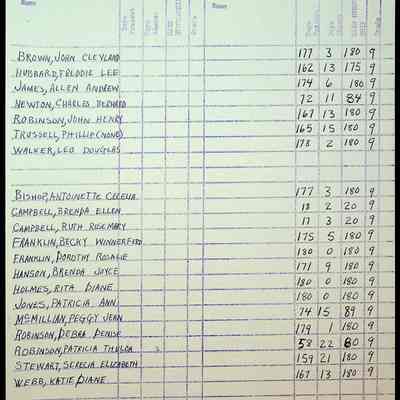 Name Days Present Days Absent Grade Name Days Present Days Absent Grade
BROWN, JOHN CLEYLAND 177 3 180 9
HUBBARD, FREDDIE LEE 162 13 175 9
JAMES, ALLEN ANDREW 174 6 180 9
NEWTON, CHARLES BERNARD 72 11 84 9
ROBINSON, JOHN HENRY 167 13 180 9
TRUSSELL, PHILLIP (NONE) 165 15 180 9
WALKER, LEO DOUGLAS 178 2 180 9
BISHOP, ANTOINETTE CECELIA 177 3 180 9
CAMPBELL, BRENDA ELLEN 18 2 20 9
CAMPBELL, RUTH ROSEMARY 17 3 20 9
FRANKLIN, BECKY WINNERFORD 175 5 180 9
FRANKLIN, DOROTHY ROSALIE 180 0 180 9
HANSON, BRENDA JOYCE 171 9 180 9
HOLMES, RITA DIANE 180 0 180 9
JONES, PATRICIA ANN 180 0 180 9
MCMILLIAN, PEGGY JEAN 74 15 89 9
ROBINSON, DEBRA DENISE 179 1 180 9
ROBINSON, PATRICIA THULDA 58 22 80 9
STEWART, SERECIA ELIZABETH 159 21 180 9
WEBB, KATIE DIANE 167 13 180 9